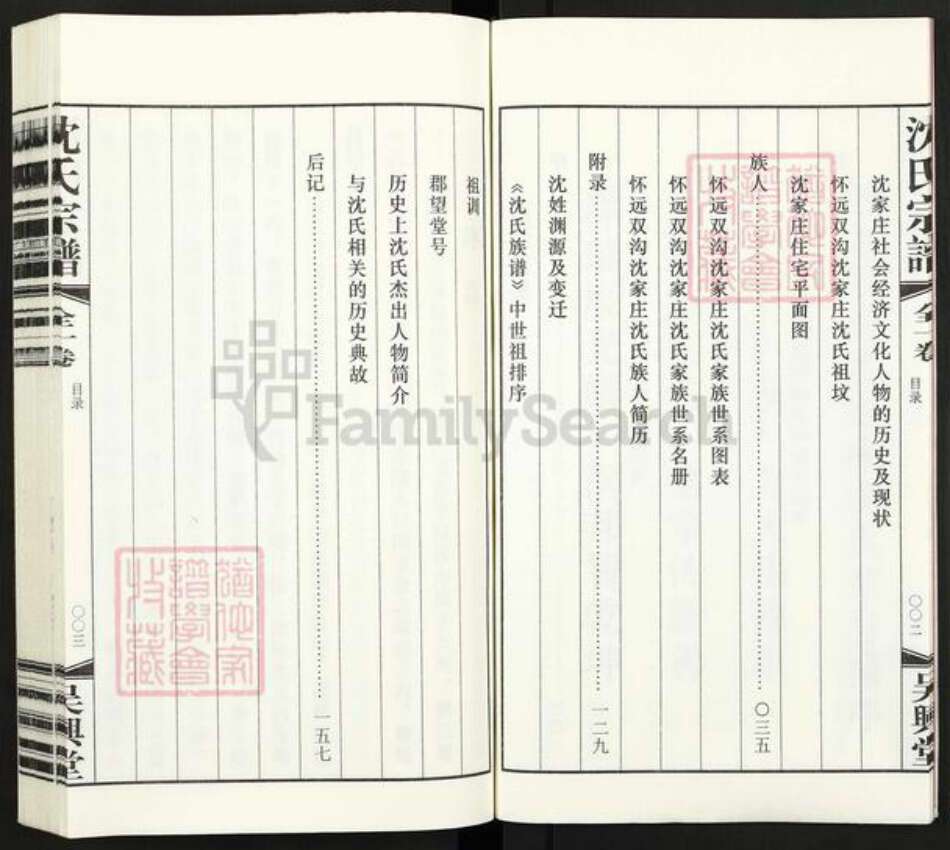 沈氏宗譜
全一卷
目录
〇〇二
吴興堂
沈家庄社会经济文化人物的历史及现状
怀远双沟沈家庄沈氏祖坟
沈家庄住宅平面图
族人……〇三五
怀远双沟沈家庄沈氏家族世系图表
怀远双沟沈家庄沈氏家族世系名册
怀远双沟沈家庄沈氏族人简历
附录……一二九
沈姓渊源及变迁
《沈氏族谱》中世祖排序
祖训
郡望堂号
历史上沈氏杰出人物简介
与沈氏相关的历史典故
后记……一五七
沈氏宗譜
全一卷
目录
〇〇三
吴興堂
猶他家
譜學會
收藏
猶他家
譜學會
收藏
FamilySearch